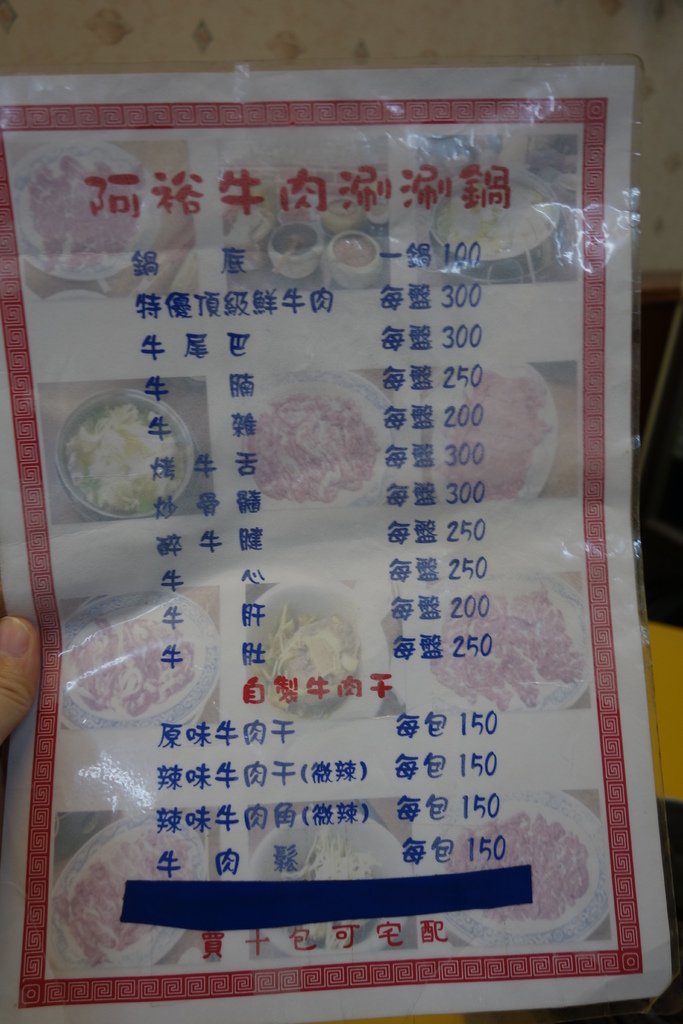 阿裕牛肉涮涮鍋
鍋底 一鍋100
特優頂級鮮牛肉 每盤300
牛尾巴 每盤300
牛腩 每盤250
牛雜 每盤200
燻牛舌 每盤300
炒骨髓 每盤300
醉牛腱 每盤250
牛心 每盤250
牛肝 每盤200
牛肚 每盤250
自製牛肉干
原味牛肉干 每包150
辣味牛肉干(微辣) 每包150
辣味牛肉角(微辣) 每包150
牛肉鬆 每包150
買十包可宅配